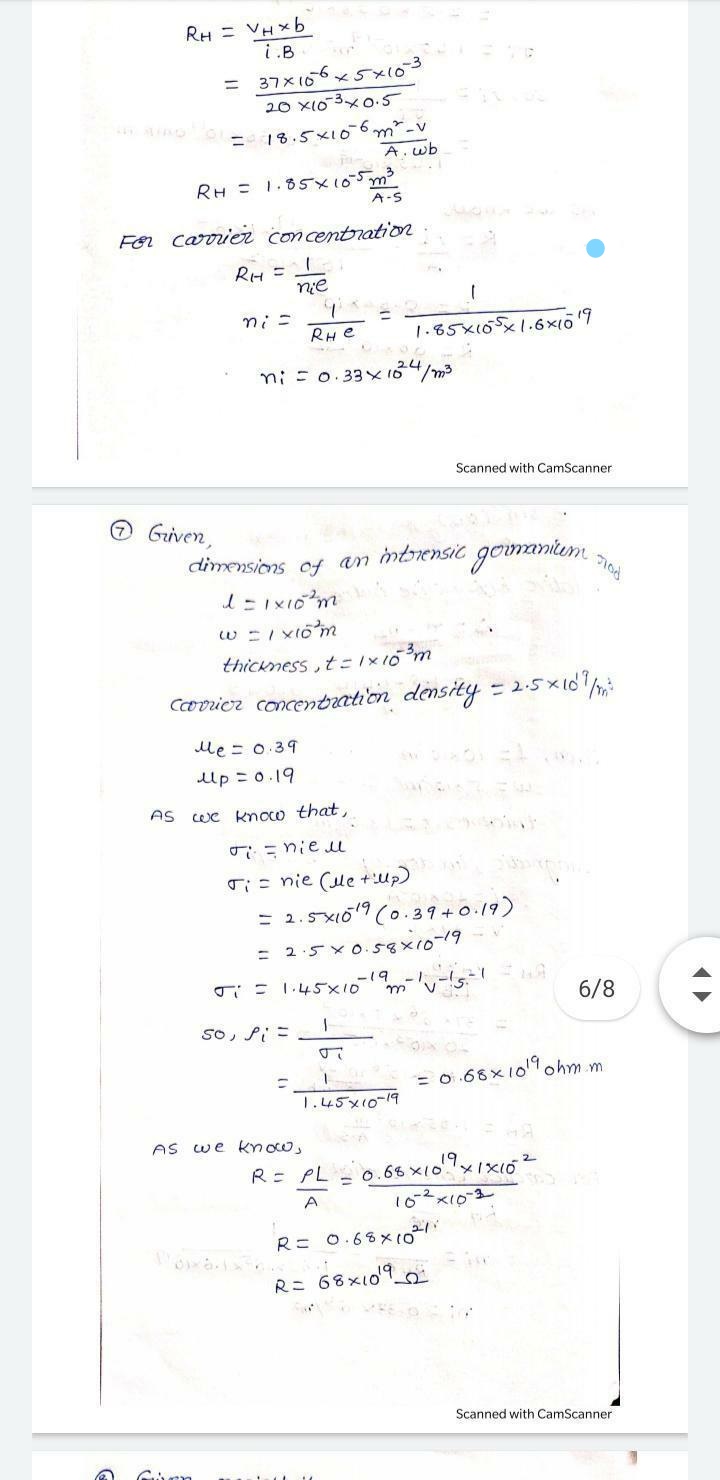 RH = VH×b / i.B
= 37×10⁻⁶×5×10⁻³ / 20×10⁻³×0.5
= 18.5×10⁻⁶ m²-V / A.wb
RH = 1.85×10⁻⁵ m³ / A-S
For carrier concentration
RH = 1 / nie
ni = 1 / RH e = 1 / 1.85×10⁻⁵×1.6×10⁻¹⁹
ni = 0.33×10²⁴/m³
Scanned with CamScanner
⑦ Given,
dimensions of an intrensic germanium rod
l = 1×10⁻²m
w = 1×10⁻²m
thickness, t = 1×10⁻³m
carrier concentration density = 2.5×10¹⁹/m³
μe = 0.39
μp = 0.19
As we know that,
σi = nieμ
σi = nie (μe+μp)
= 2.5×10⁻¹⁹ (0.39+0.19)
= 2.5×0.58×10⁻¹⁹
σi = 1.45×10⁻¹⁹ m⁻¹v⁻¹s⁻¹
6/8
so, ρi = 1 / σi
= 1 / 1.45×10⁻¹⁹ = 0.68×10¹⁹ ohm.m
As we know,
R = ρL / A = 0.68×10¹⁹×1×10⁻² / 10⁻²×10⁻³
R = 0.68×10²¹
R = 68×10¹⁹ Ω
Scanned with CamScanner
Given